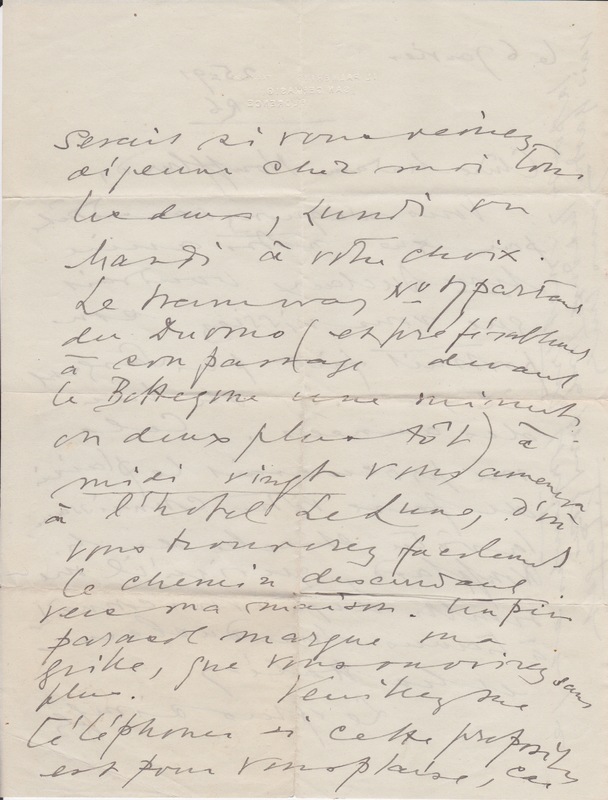 serait si vous veniez
déjeuner chez moi tous
les deux, Lundi ou
Mardi à votre choix.
Le tramway No 7 partant
du Duomo (et préférablement
à son passage devant
le Bottegone une minute
ou deux plus tôt) à
midi vingt vous amenera
à l'hotel Le Lune, d'où
vous trouverez facilement
le chemin descendant
vers ma maison. Un pin
parasol marque ma
grille, que vous ouvrirez sans
plus. Veuillez me
téléphoner si cette proposition
est pour vous plaire, car